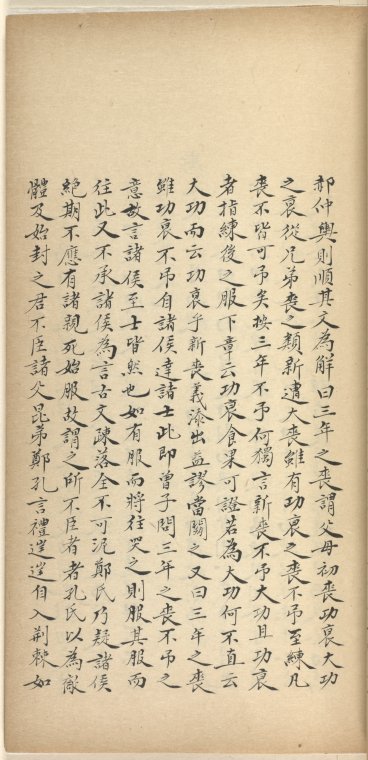 郝仲輿則順其文為解曰三年之喪謂父母初喪功衰大功
之衰從兄弟喪之類新遭大喪雖有功衰之喪不弔至練凡
喪不皆可弔矣按三年不弔何獨言新喪不弔大功且功衰
者指練後之服下章云功衰食果可證若為大功何不直云
大功而云功衰乎新喪義添出益謬當闕之又曰三年之喪
雖功衰不弔自諸侯達諸士此即曾子問三年之喪不弔之
意故言諸侯至士皆然也如有服而將往哭之則服其服而
往此又不承諸侯為言古文疎落全不可泥鄭氏乃疑諸侯
絕期不應有諸親死始服故謂之所不臣者者孔氏以為敵
體及始封之君不臣諸父昆弟鄭孔言禮遑遑自入荆棘如